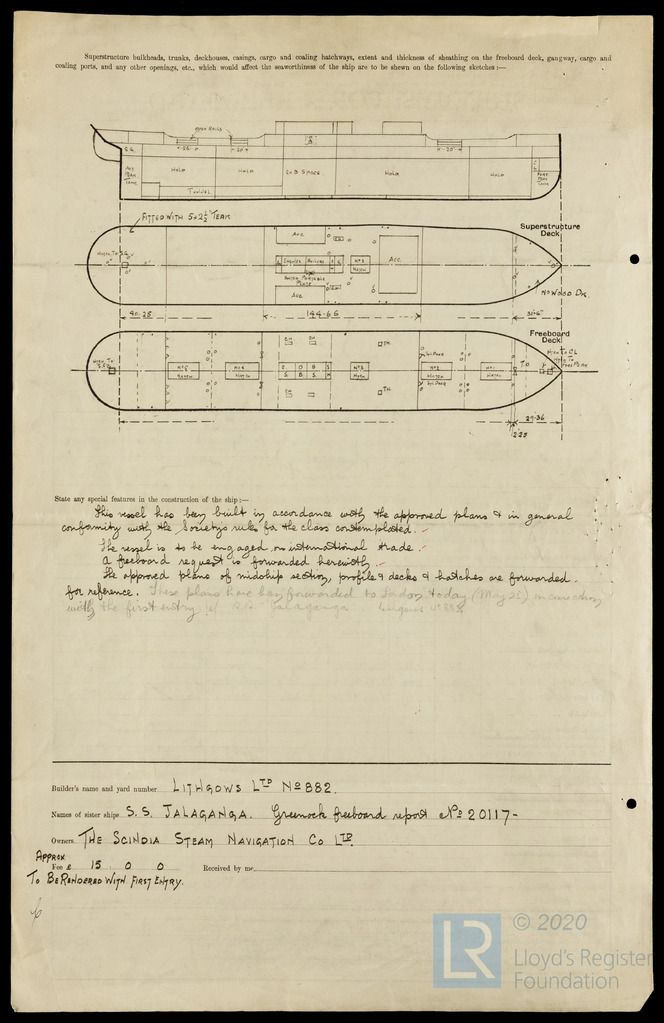 Superstructure bulkheads, trunks, deckhouses, casings, cargo and coaling hatchways, extent and thickness of sheathing on the freeboard deck, gangway, cargo and
coaling ports, and any other openings, etc., which would affect the seaworthiness of the ship are to be shewn on the following sketches :—
Open Rails
S.G.
Aft Peak Tank
Hold
Hold
E & B Space
Hold
Hold
Fore Peak Tank
Tunnel
Fitted with 5 x 2½ Teak
Superstructure
Deck
Acc.
Engines
Boilers
Nº3
Hatch
Acc.
Acc.
No Wood Dk.
40.25
144.66
Freeboard
Deck
Nº5
Hatch
Nº4
Hatch
E O B S
S B S
Nº3
Hatch
Nº2
Hatch
Nº1
Hatch
29.36
2.25
State any special features in the construction of the ship:—
This vessel has been built in accordance with the approved plans & in general
conformity with the Society's rules for the class contemplated.
The vessel is to be engaged on international trade.
A freeboard request is forwarded herewith.
The approved plans of midship section, profile & decks & hatches are forwarded
for reference. These plans have been forwarded to London today (May 25) in connection
with the first entry of S.S. "Jalaganga" Lithgows Nº 882
Builder's name and yard number Lithgows Ltd Nº 882.
Names of sister ships S.S. Jalaganga. Greenock freeboard report Nº 20117-
Owners The Scindia Steam Navigation Co Ltd.
Approx
Fee £ 15 0 0 Received by me
To Be Rendered With First Entry.
LR
© 2020
Lloyd's Register
Foundation